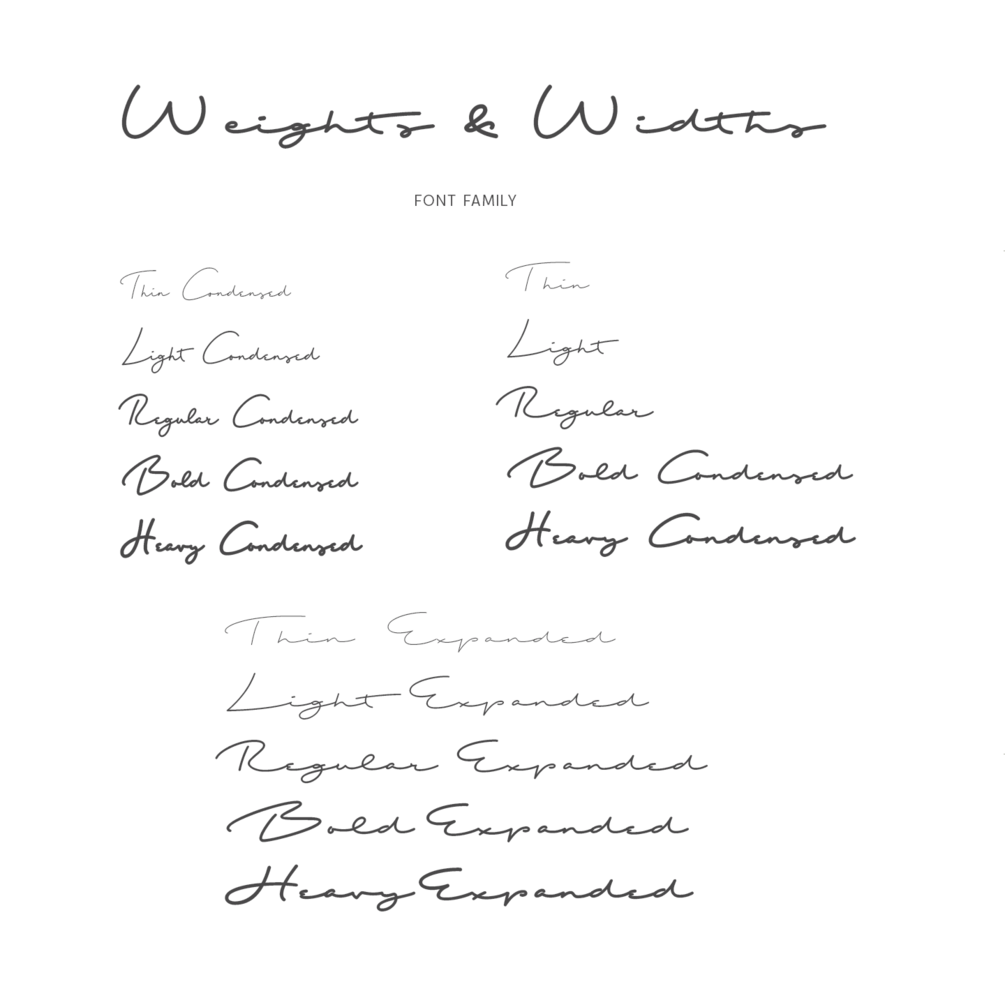 Weights & Widths
FONT FAMILY
Thin Condensed
Light Condensed
Regular Condensed
Bold Condensed
Heavy Condensed
Thin
Light
Regular
Bold Condensed
Heavy Condensed
Thin Expanded
Light Expanded
Regular Expanded
Bold Expanded
Heavy Expanded